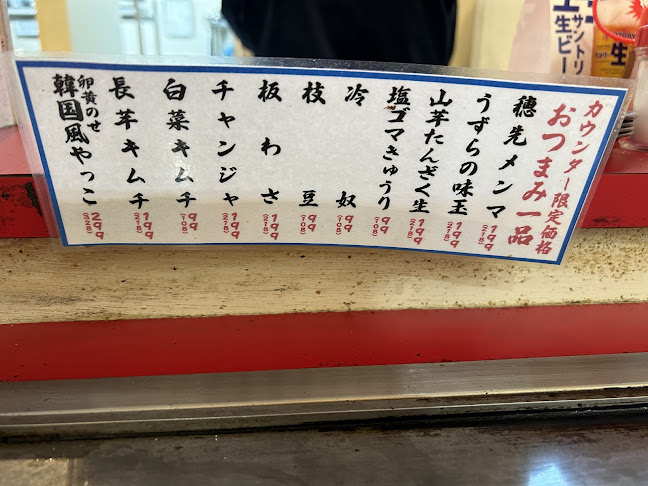 カウンター限定価格
おつまみ一品
穂先メンマ 199(218)
うずらの味玉 199(218)
山芋たんざく生 199(218)
塩ゴマきゅうり 99(108)
冷奴 99(108)
枝豆 99(108)
板わさ 199(218)
チャンジャ 199(218)
白菜キムチ 99(108)
長芋キムチ 199(218)
卵黄のせ
韓国風やっこ 299(328)
サントリー
生ビー
生